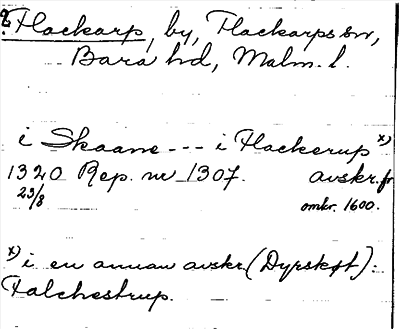 ? Flackarp, by, Flackarps sn,
Bara hd, Malm. l.
i Skaane --- i Flackerup x)
1320 Rep. nr 1307. avskr. fr
23/8 omkr. 1600.
x) i en annan avskr. (Dyrskøt):
Falchestrup.